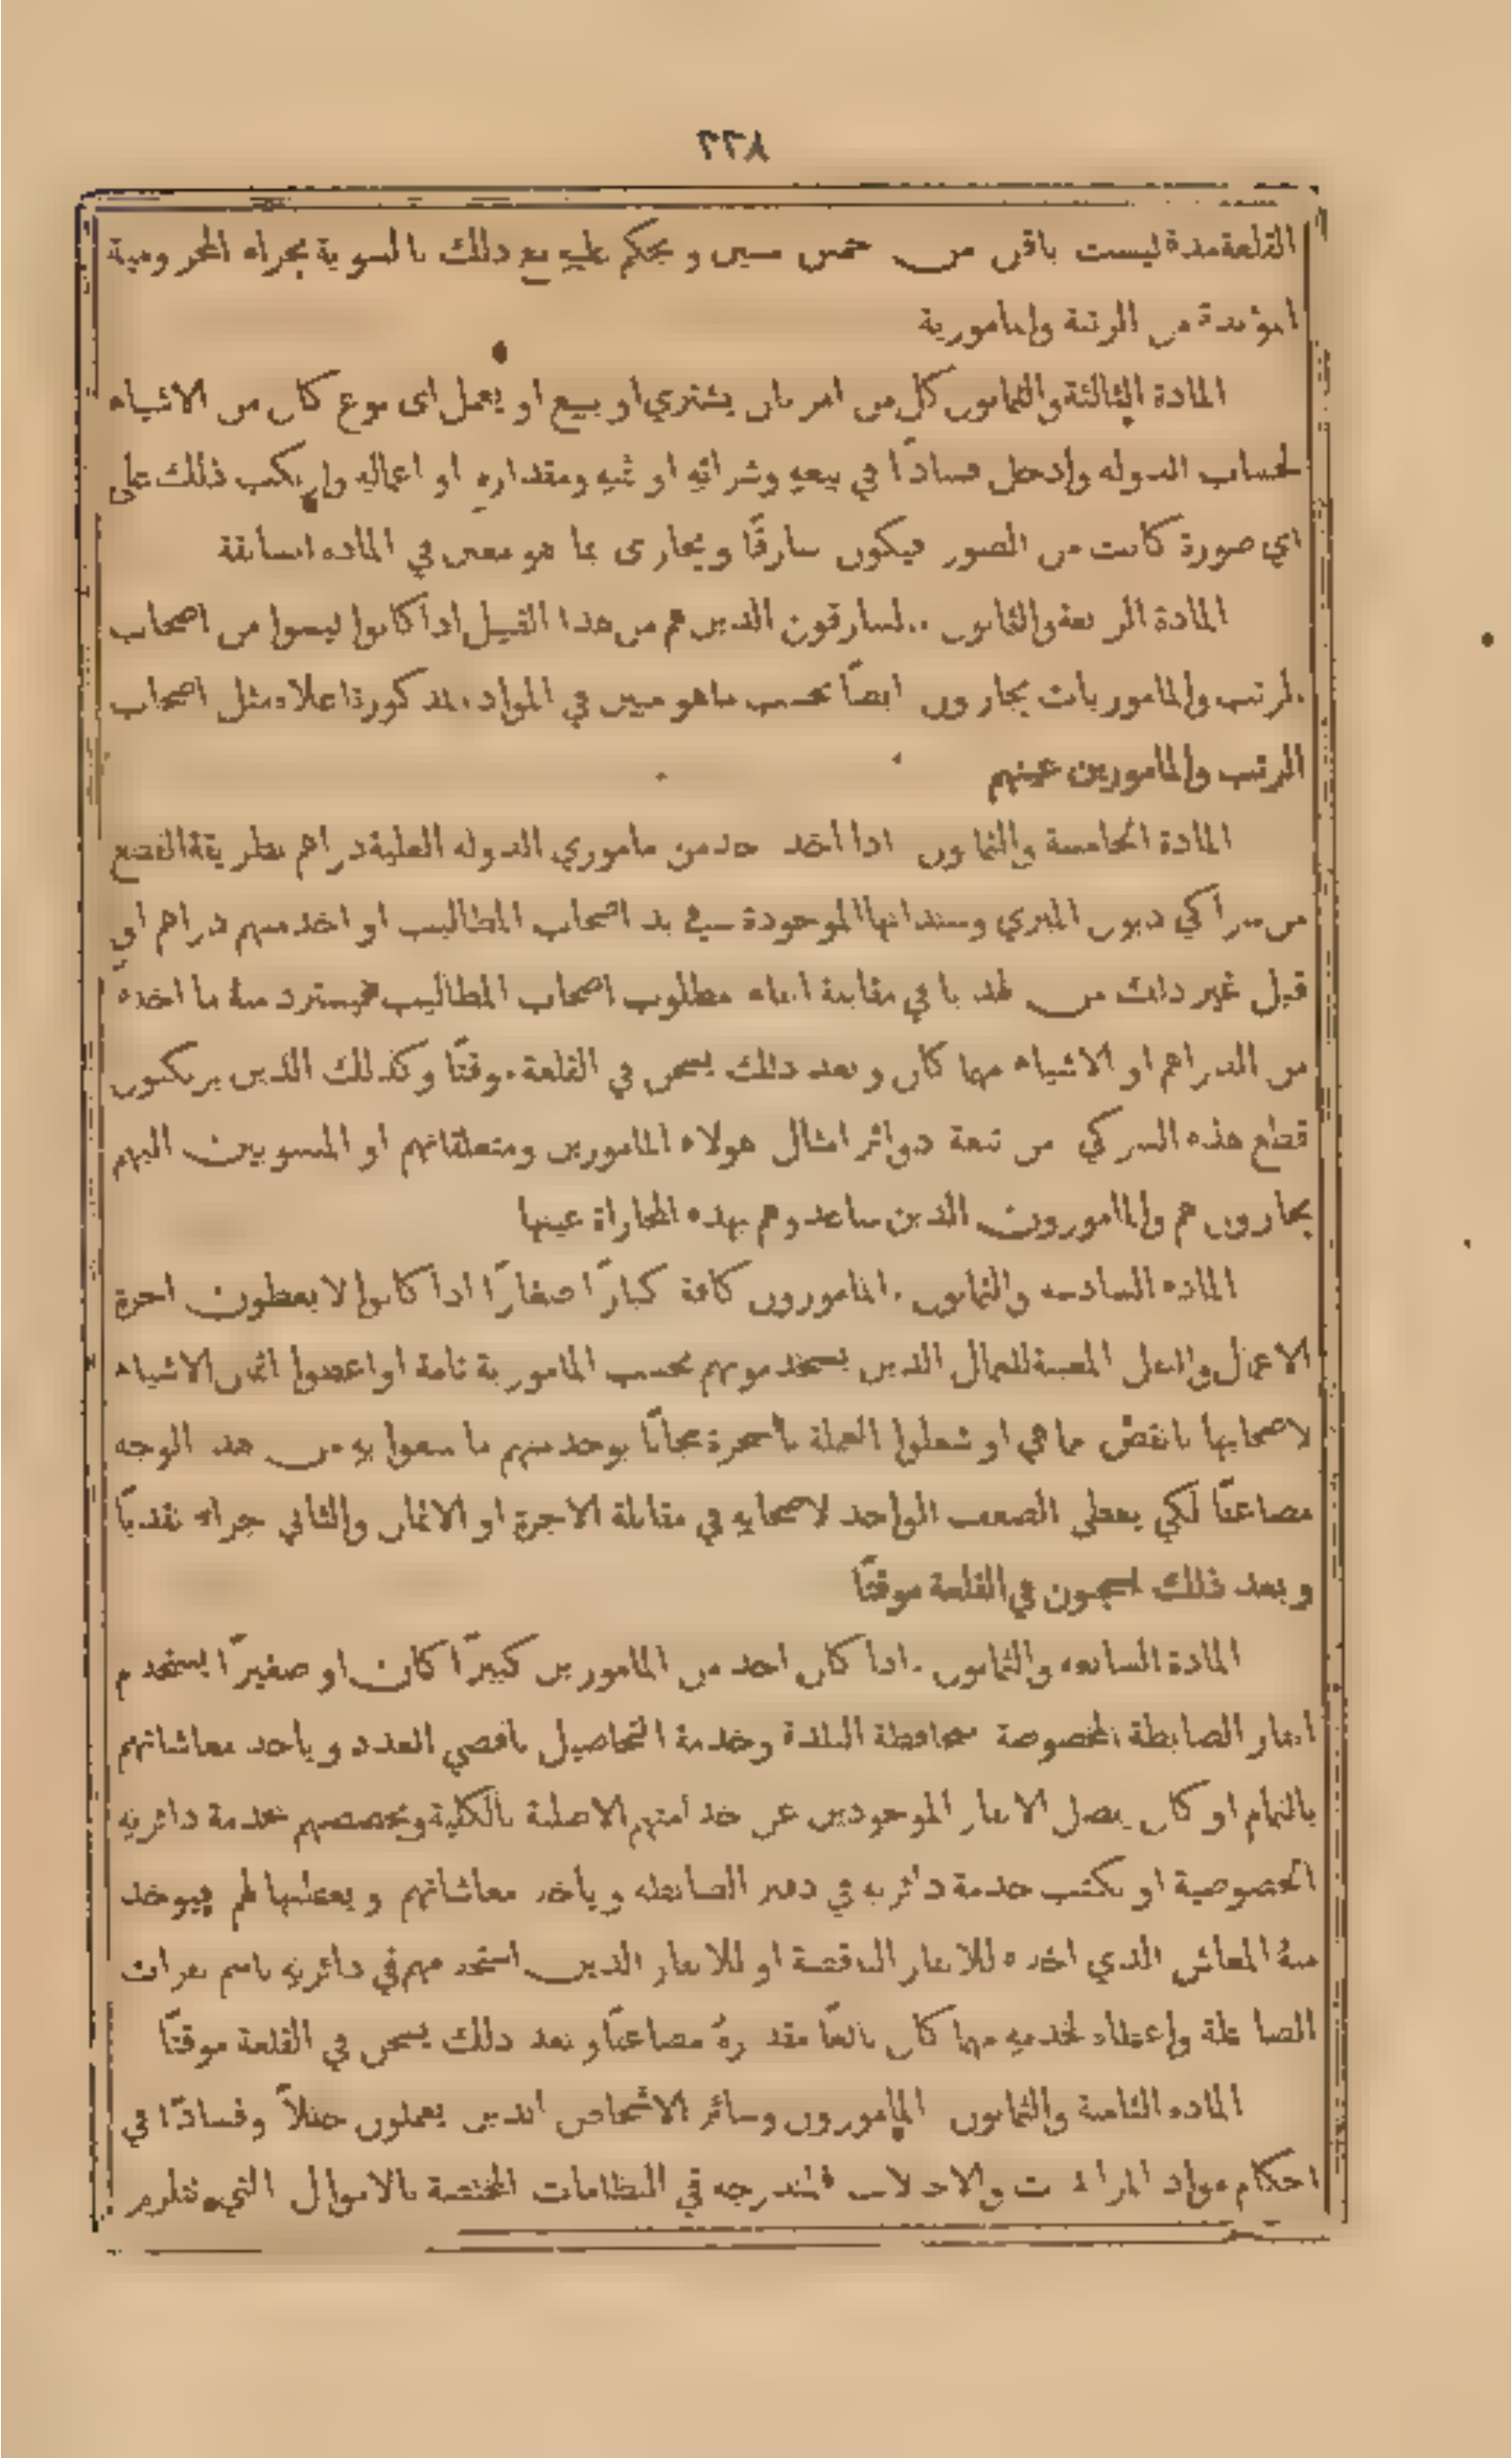 ٣٣٨
القلعة مدة ليست باقل من خمس سنين ويحكم عليهِ مع ذلك بالسوية بجزاء المحرومية
المؤبدة من الرتبة والمامورية
المادة الثالثة والثمانون كل من امر بان يشتري او يبيع او يعمل اى نوع كان من الاشياء
لحساب الدوله وادخل فسادًا في بيعهِ وشرائهِ او ثمنهِ ومقدارهِ او اعمالهِ وارتكب ذلك على
اي صورة كانت من الصور فيكون سارقًا ويجازى بما هو معين في الماده السابقة
المادة الرابعة والثمانون السارقون الذين هم من هذا القبيل اذا كانوا ليسوا من اصحاب
الرتب والماموريات يجازون ايضًا بحسب ما هو مبين في المواد المذكورة اعلاه مثل اصحاب
الرتب والمامورين عينهم
المادة الخامسة والثمانون اذا اخذ احد من ماموري الدوله العلية دراهم بطريقة القطع
من سراكي ديون الميري وسنداتها الموجودة في يد اصحاب المطاليب او اخذ منهم دراهم او
قبل غير ذلك من هدايا في مقابلة ايفاء مطلوب اصحاب المطاليب فيسترد منهُ ما اخذه
من الدراهم او الاشياء مهما كان وبعد ذلك يسجن في القلعة موقتًا وكذلك الذين يرتكبون
قطع هذه السركي من تبعة دوائر امثال هولاء المامورين ومتعلقاتهم او المنسوبين اليهم
يجازون هم والمامورون الذين ساعدوهم بهذه المجازاة عينها
الماده السادسه والثمانون المامورون كافة كبارًا صغارًا اذا كانوا لا يعطون اجرة
الاعمال والنقل المعينة للعمال الذين يستخدمونهم بحسب المامورية تامة او اعطوا اثمان الاشياء
لاصحابها بانقص مما هي او شغلوا العملة بالسخرة مجانًا يوخذ منهم ما منعوا بهِ من هذا الوجه
مضاعفًا لكي يعطى الضعف الواحد لاصحابهِ في مقابلة الاجرة او الاثمان والثاني جزاء نقديًا
وبعد ذلك يسجون في القلعة موقتًا
المادة السابعه والثمانون اذا كان احد من المامورين كبيرًا كان او صغيرًا يستخدم
انفار الضابطة المخصوصة بمحافظة البلدة وخدمة التحاصيل بانقص العدد وياخذ معاشاتهم
بالتمام او كان يفصل الانفار الموجودين عن خدامتهم الاصلية بالكلية ويخصصهم بخدمة دائرتهِ
الخصوصية او يكتب خدمة دائرته في دفتر الضابطه وياخذ معاشاتهم ويعطيها لهم فيوخذ
منهُ المعاش الذي اخذه للانفار الناقصة او للانفار الذين استخدمهم في دائرتهِ باسم نفرات
الضابطة واعطاه لخدمهِ مهما كان بالغًا مقدارهُ مضاعفًا وبعد ذلك يسجن في القلعة موقتًا
الماده الثامنة والثمانون المامورون وسائر الاشخاص الذين يعملون خللاً وفسادًا في
احكام مواد المزايدات والاحالات المندرجه في النظامات المختصة بالاموال التي تلزم